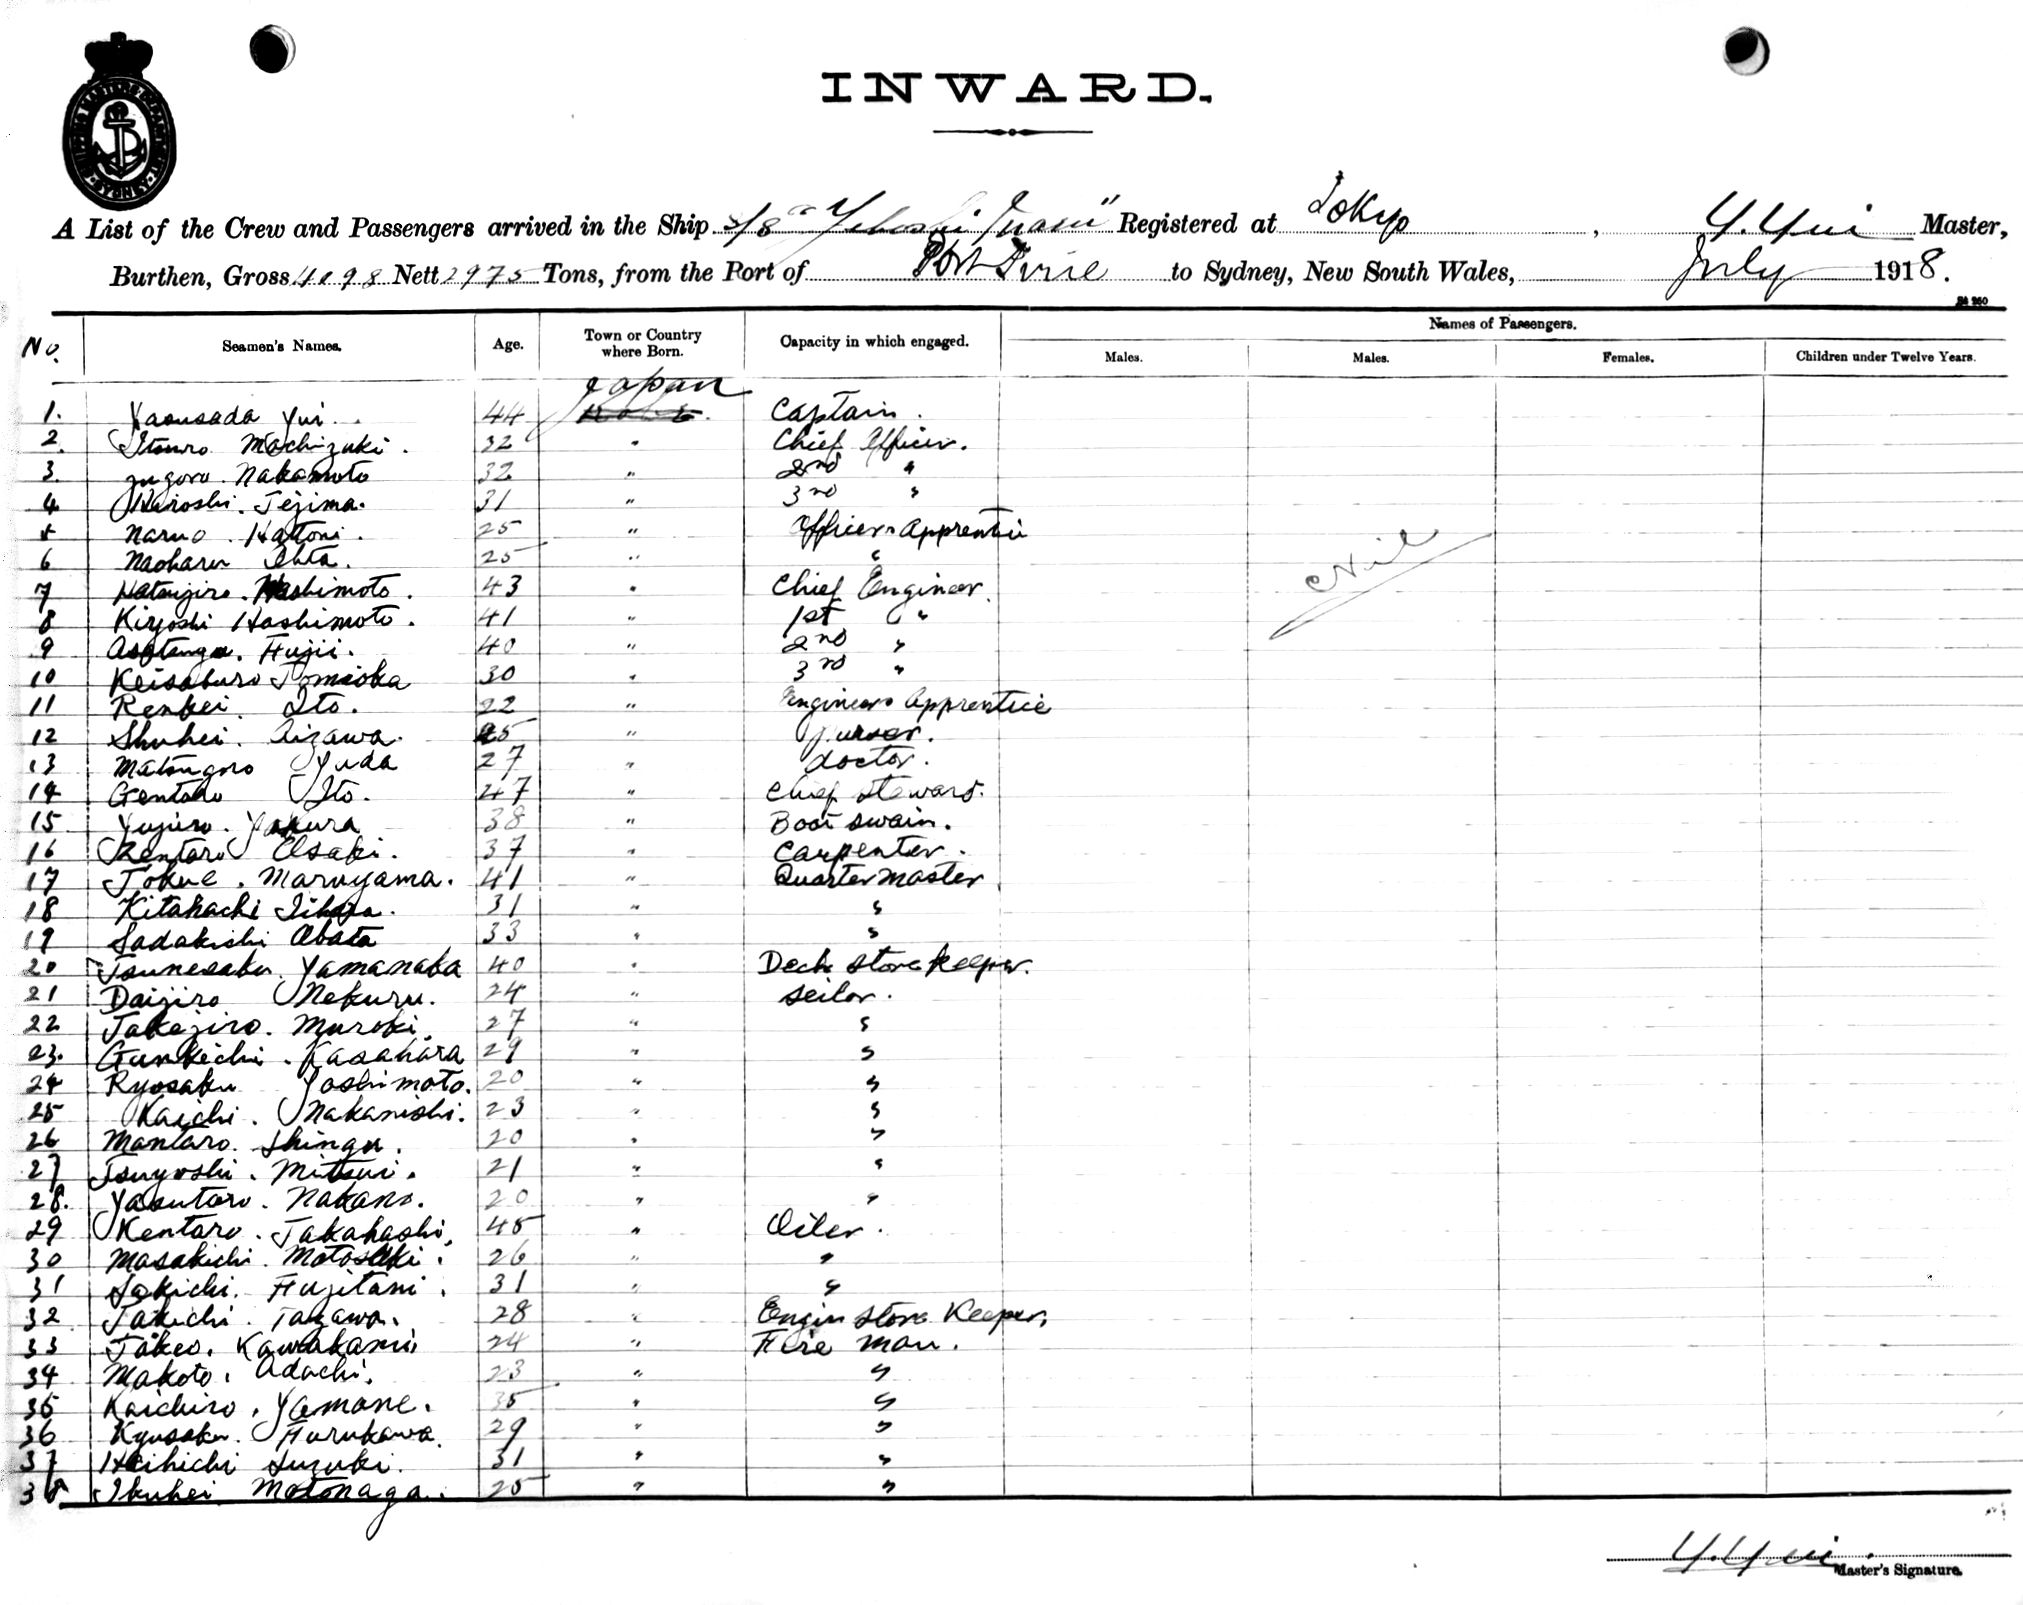 INWARD.
A List of the Crew and Passengers arrived in the Ship S/S " Maru" Registered at Tokyo, Y. Yui Master,
Burthen, Gross 4098 Nett 2975 Tons, from the Port of Port Pirie to Sydney, New South Wales, July 1918.
No. Seamen's Names. Age. Town or Country where Born. Capacity in which engaged. Names of Passengers.
Males. Males. Females. Children under Twelve Years.
Japan
1. Yasusada Yui. 44 Captain.
2. Mochizuki. 32 " Chief Officer.
3. Nakamoto 32 " 2nd "
4 Hiroshi. Tejima. 31 " 3rd "
5 Naruo. Hattori. 25 " Officers Apprentice
6 Naoharu Ohta. 25 " "
7 Hashimoto. 43 " Chief Engineer.
8 Kiyoshi Hashimoto. 41 " 1st "
9 Fujii. 40 " 2nd "
10 Keisaburo Tomioka 30 " 3rd "
11 Renkei. Ito. 22 " Engineers Apprentice
12 Shuhei. Aizawa. 25 " Purser.
13 Matsugoro Yuda 27 " doctor.
14 Gentaro Ito. 47 " Chief Steward.
15 Yujiro. Yakura 38 " Boat swain.
16 Kentaro Osaki. 37 " Carpenter.
17 Tokue. Maruyama. 41 " Quarter Master
18 Kitahachi 31 " "
19 Sadakichi Obata 33 " "
20 Tsunesaku. Yamanaka 40 " Deck Store keeper.
21 Daijiro Nekuru. 24 " Seilor.
22 Takejiro. Muroki. 27 " "
23. Gunkichi. Kasahara 29 " "
24 Ryosaku Yoshimoto. 20 " "
25 Kaichi. Nakanishi. 23 " "
26 Mantaro. Shingu. 20 " "
27 Tsuyoshi. Mitsui. 21 " "
28. Yasutaro. Nakano. 20 " "
29 Kentaro. Takahashi, 45 " Oiler.
30 Masakichi. Motosuki. 26 " "
31 Sakichi. Fujitani. 31 " "
32 Takichi. Tazawa. 28 " Engin Store Keeper.
33 Takeo. Kawakami 24 " Fire man.
34 Makoto. Adachi. 23 " "
35 Kaichiro. Yamane. 35 " "
36 Kyusaku. Furukawa. 29 " "
37 Heihichi Suzuki. 31 " "
38 Ikuhei. Motonaga. 25 " "
Nil
Y. Yui.
Master's Signature.